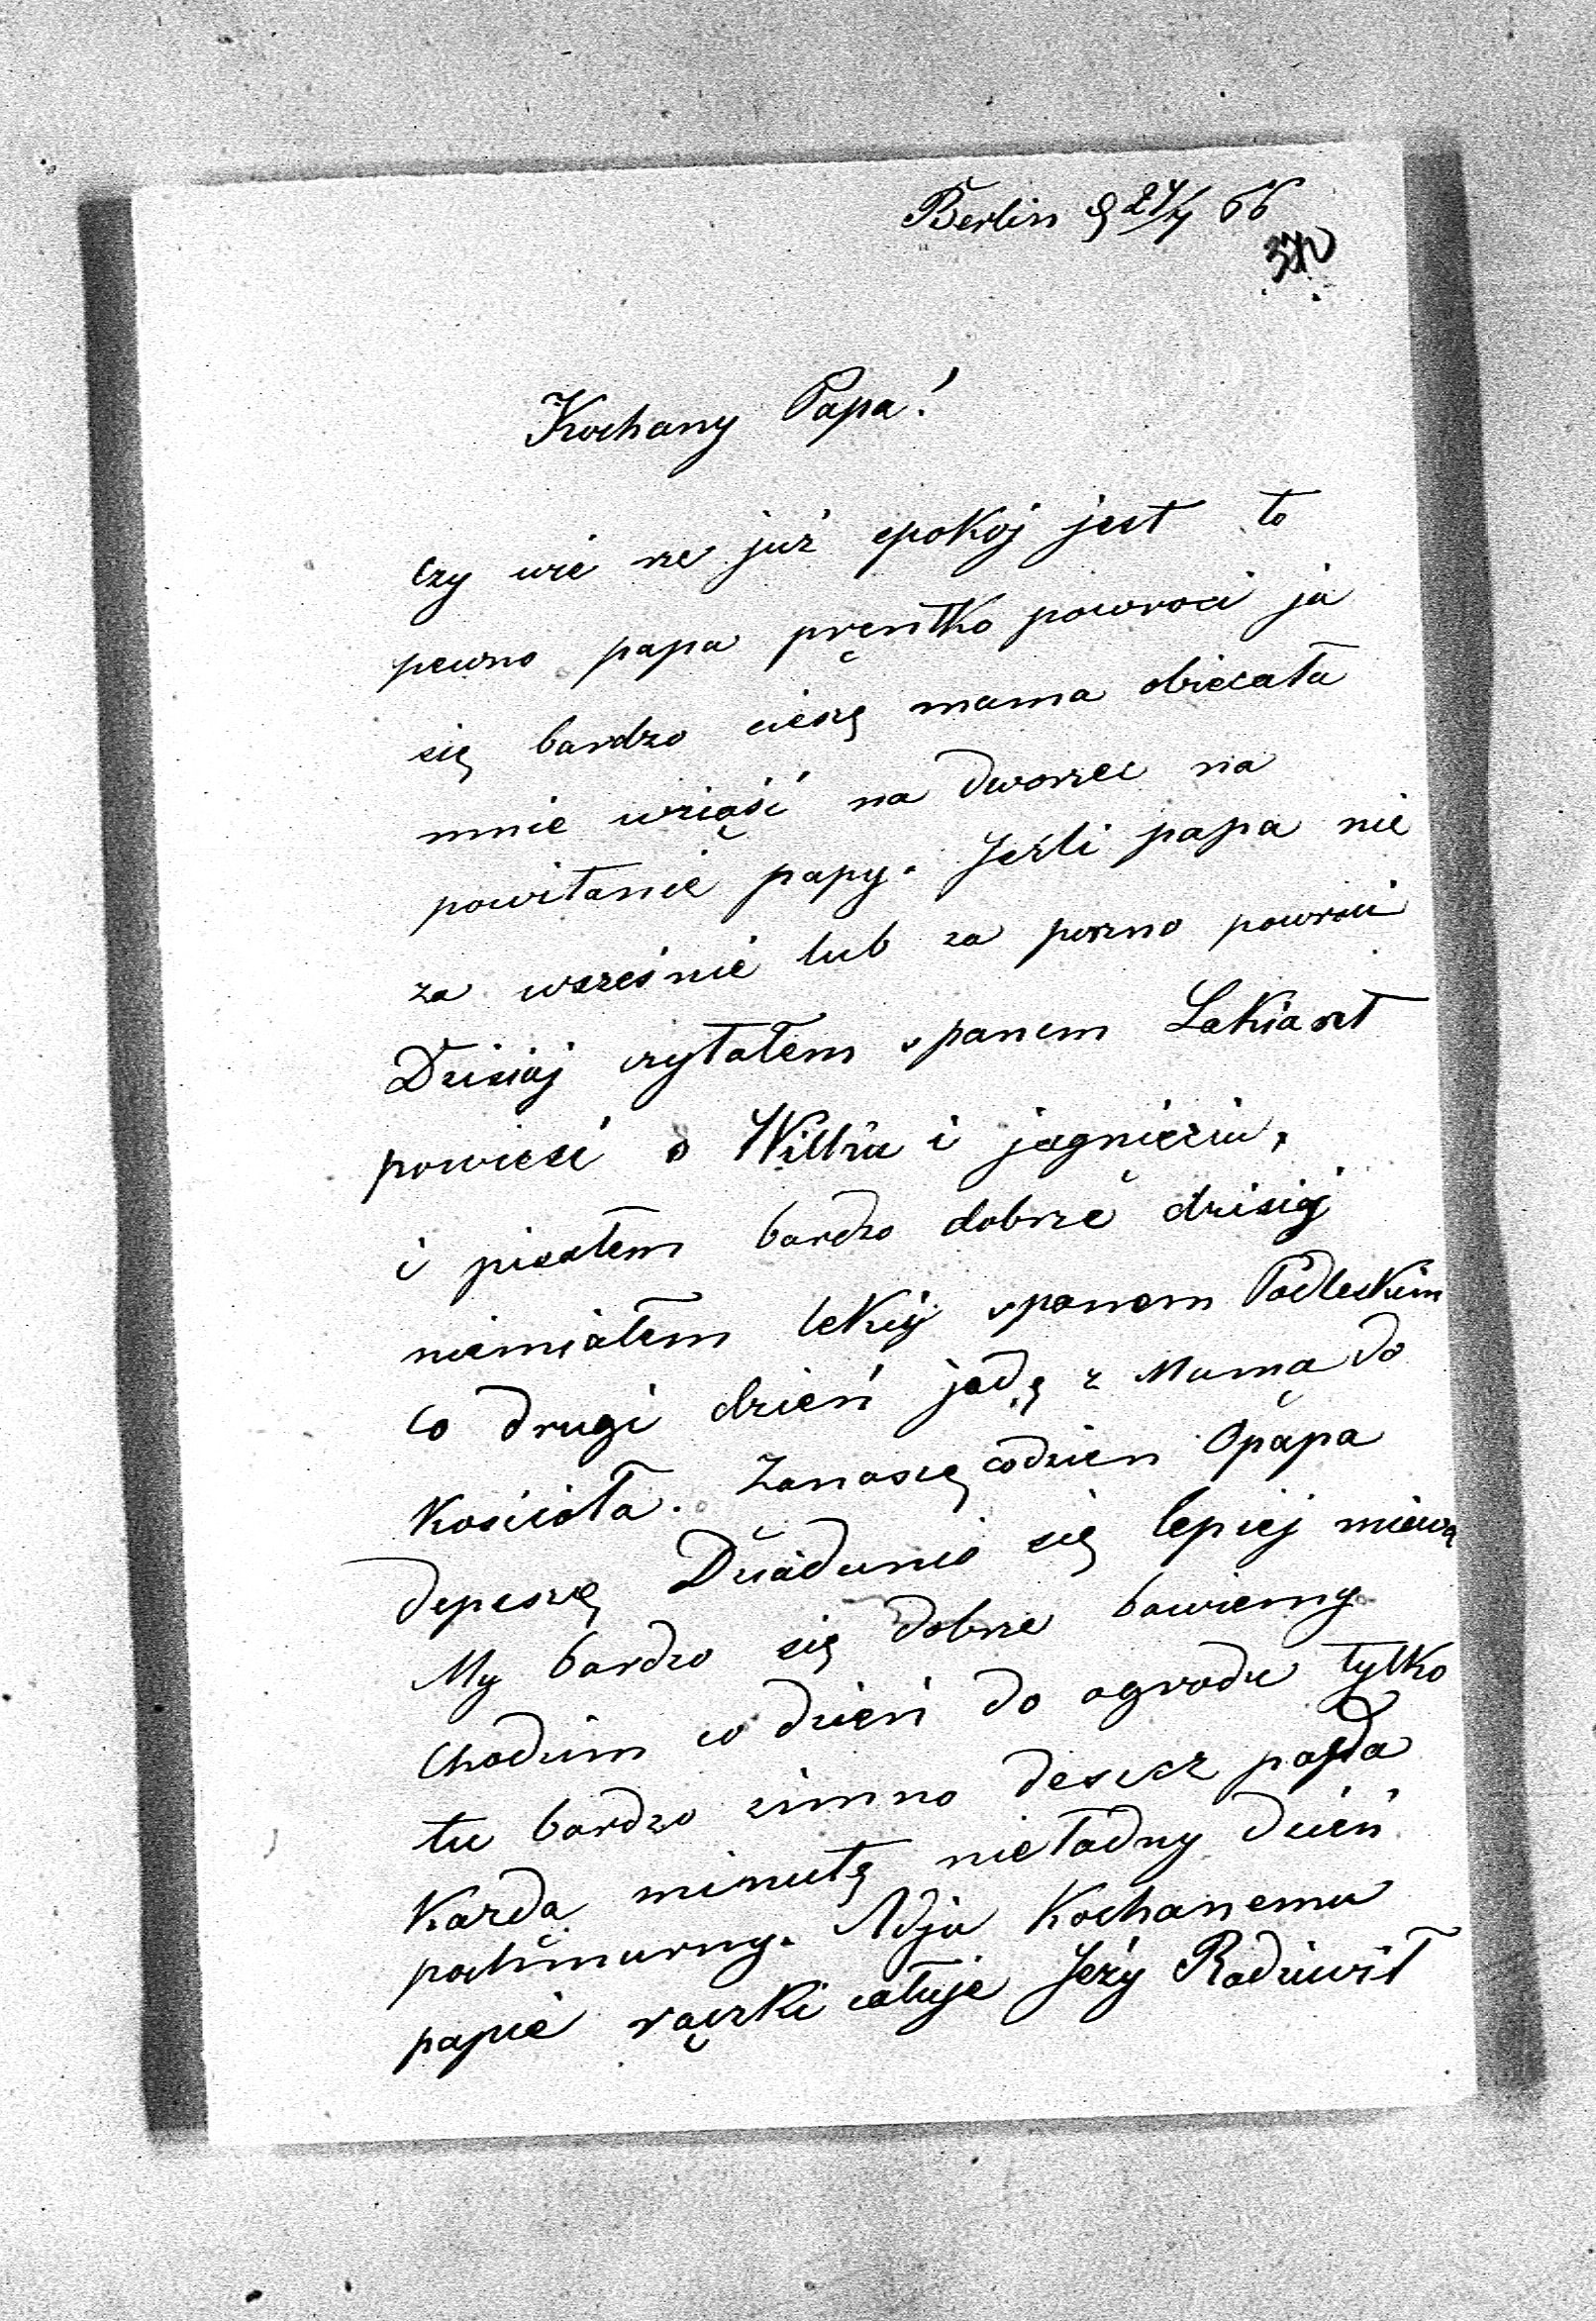 Berlin d 27/7 66
372
Kochany Papa!
czy wie ze już spokój jest to
pewno papa pręntko powroci ja
się bardzo cieszę mama obiecała
mnie wziąść na dworzec na
powitanie papy. Jeźli papa nie
za wcześnie lub za pozno powroci
Dzisiaj czytałem s panem Lakiart
powieść o Wilku i jagnięciu,
i pisałem bardzo dobrze dzisiaj
niemiałem lekcij s panem Podleskim
co drugi dzień jadę z Mamą do
Kościoła. Zanoszę codzien Opapa
depeszę Dziadunio się lepiej miewa
My bardzo się dobrze bawiemy
chodzim co dzień do ogrodu tylko
tu bardzo zimno deszcz pada
Każdą minutę nieładny dzień
pochmurny. Adja Kochanemu
papie rączki całuje Jeży Radziwił